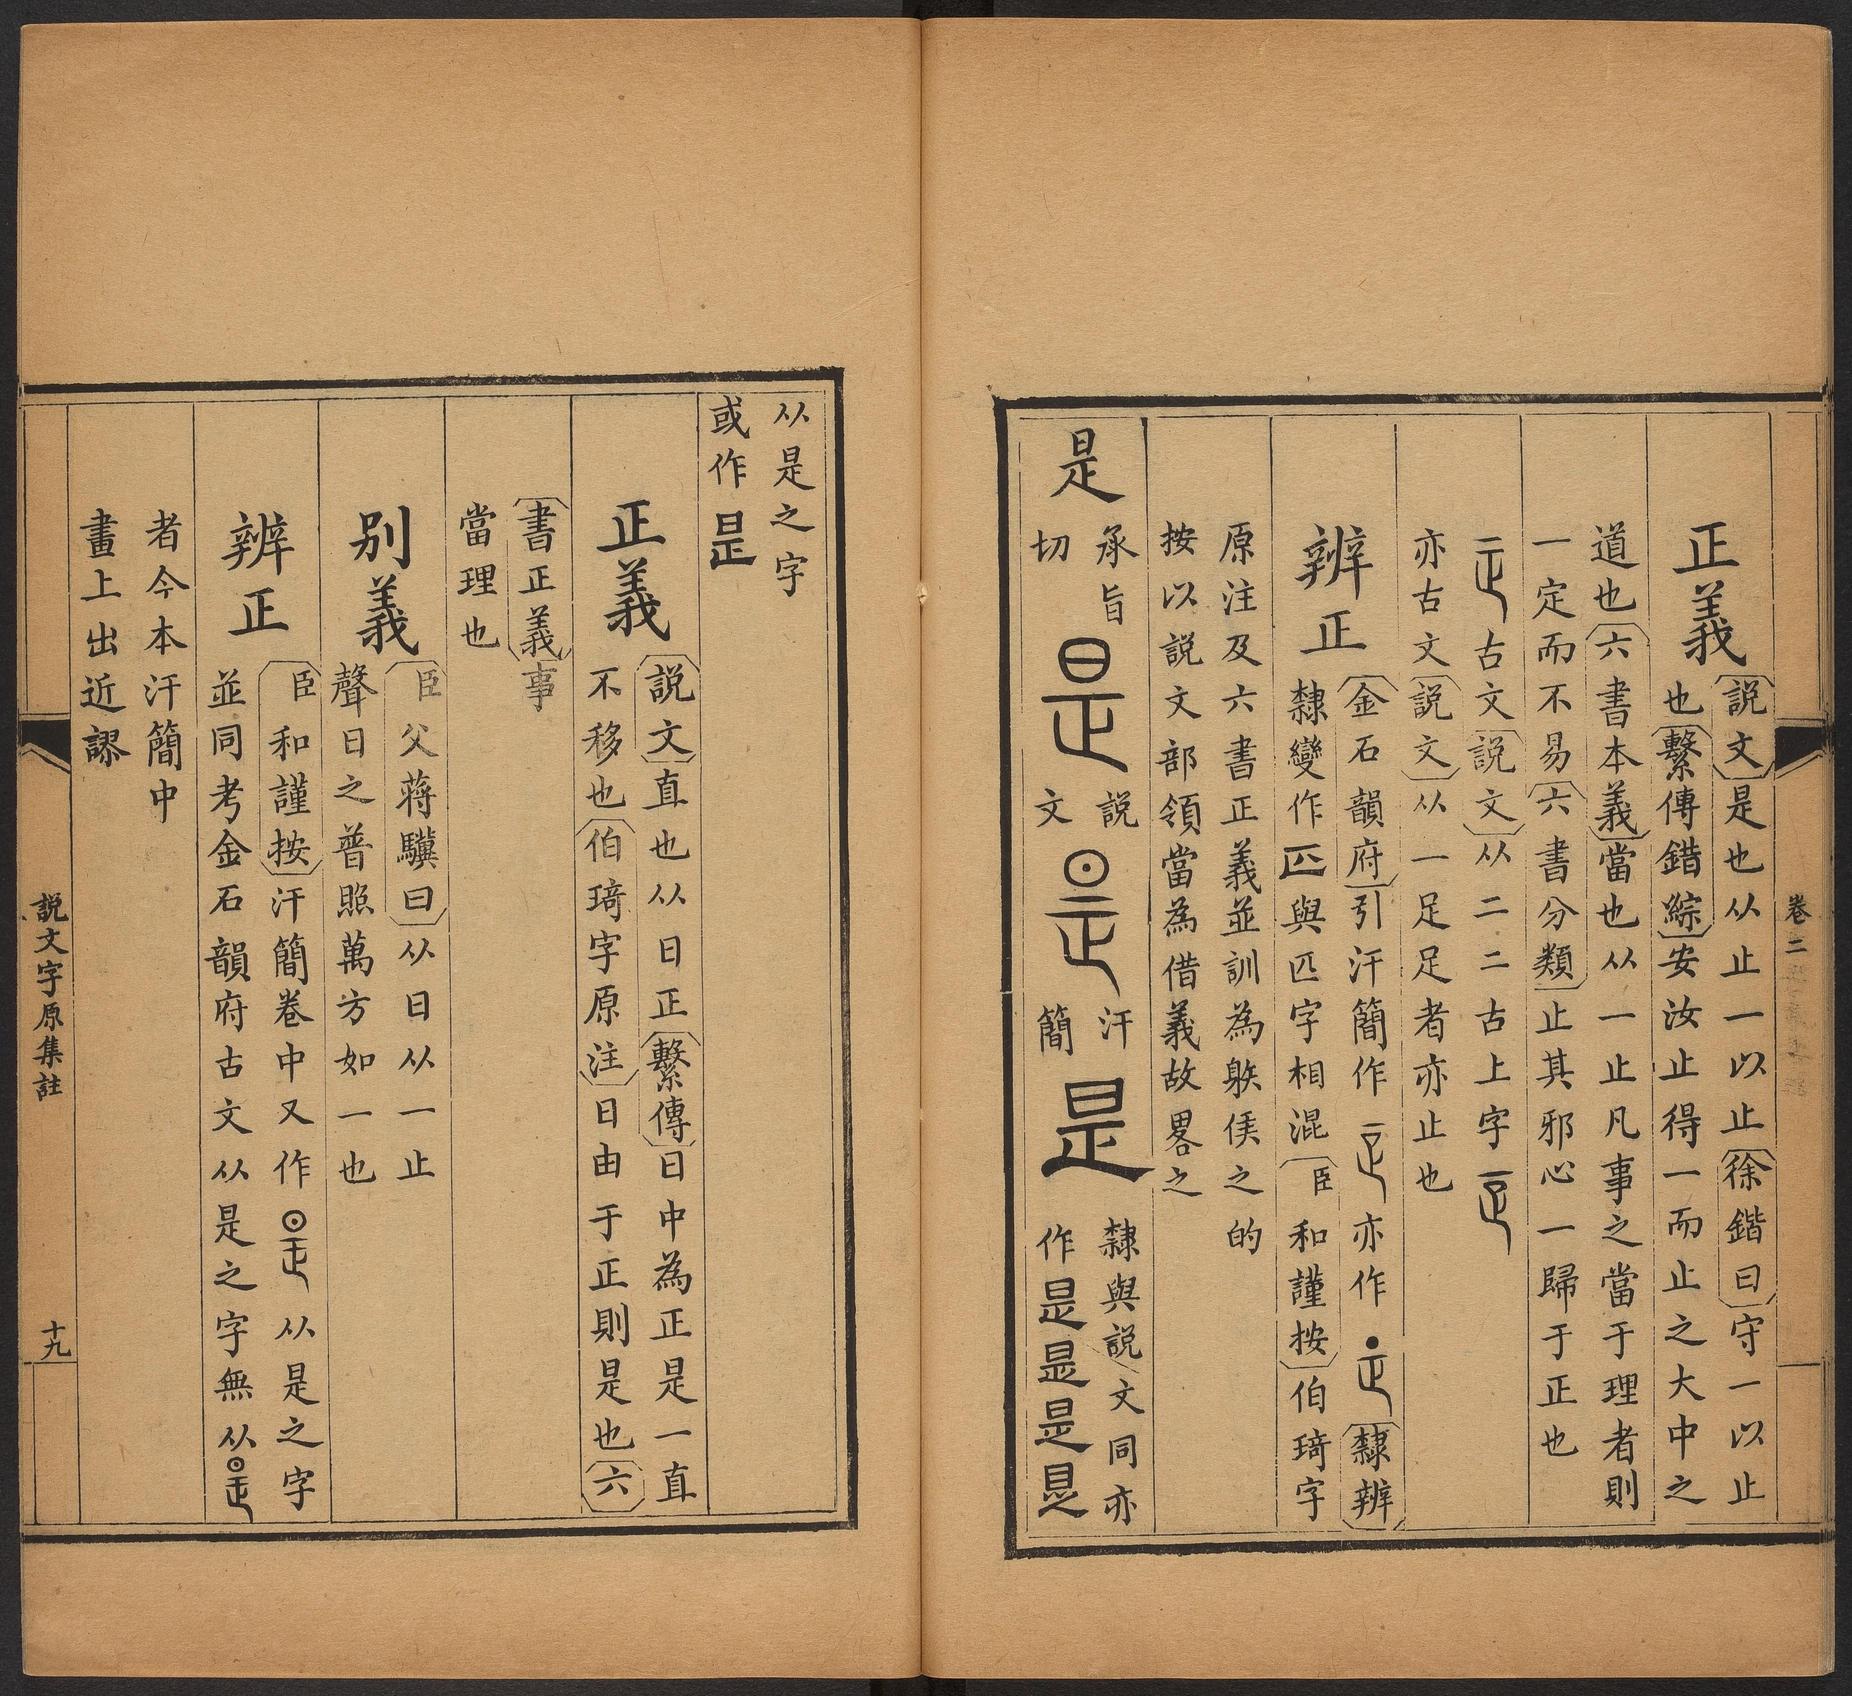 卷二
正義
説文是也从止一以止徐鍇曰守一以止
也繫傳錯綜安汝止得一而止之大中之
道也六書本義當也从一止凡事之當于理者則
一定而不易六書分類止其邪心一歸于正也
古文説文从二二古上字
亦古文説文从一足足者亦止也
辨正
金石韻府引汗簡作 亦作 隸辨
隸變作 與匹字相混臣和謹按伯琦字
原注及六書正義並訓為躲侯之的
按以説文部領當為借義故畧之
是
承旨
切
説
文
汗
簡
是
隸與説文同亦
作是昰是
从是之字
或作昰
正義
説文直也从日正繫傳日中為正是一直
不移也伯琦字原注日由于正則是也六
書正義事
當理也
別義
臣父蔣驥曰从日从一止
聲日之普照萬方如一也
辨正
臣和謹按汗簡卷中又作 从是之字
並同考金石韻府古文从是之字無从
者今本汗簡中
畫上出近謬
説文字原集註
十九